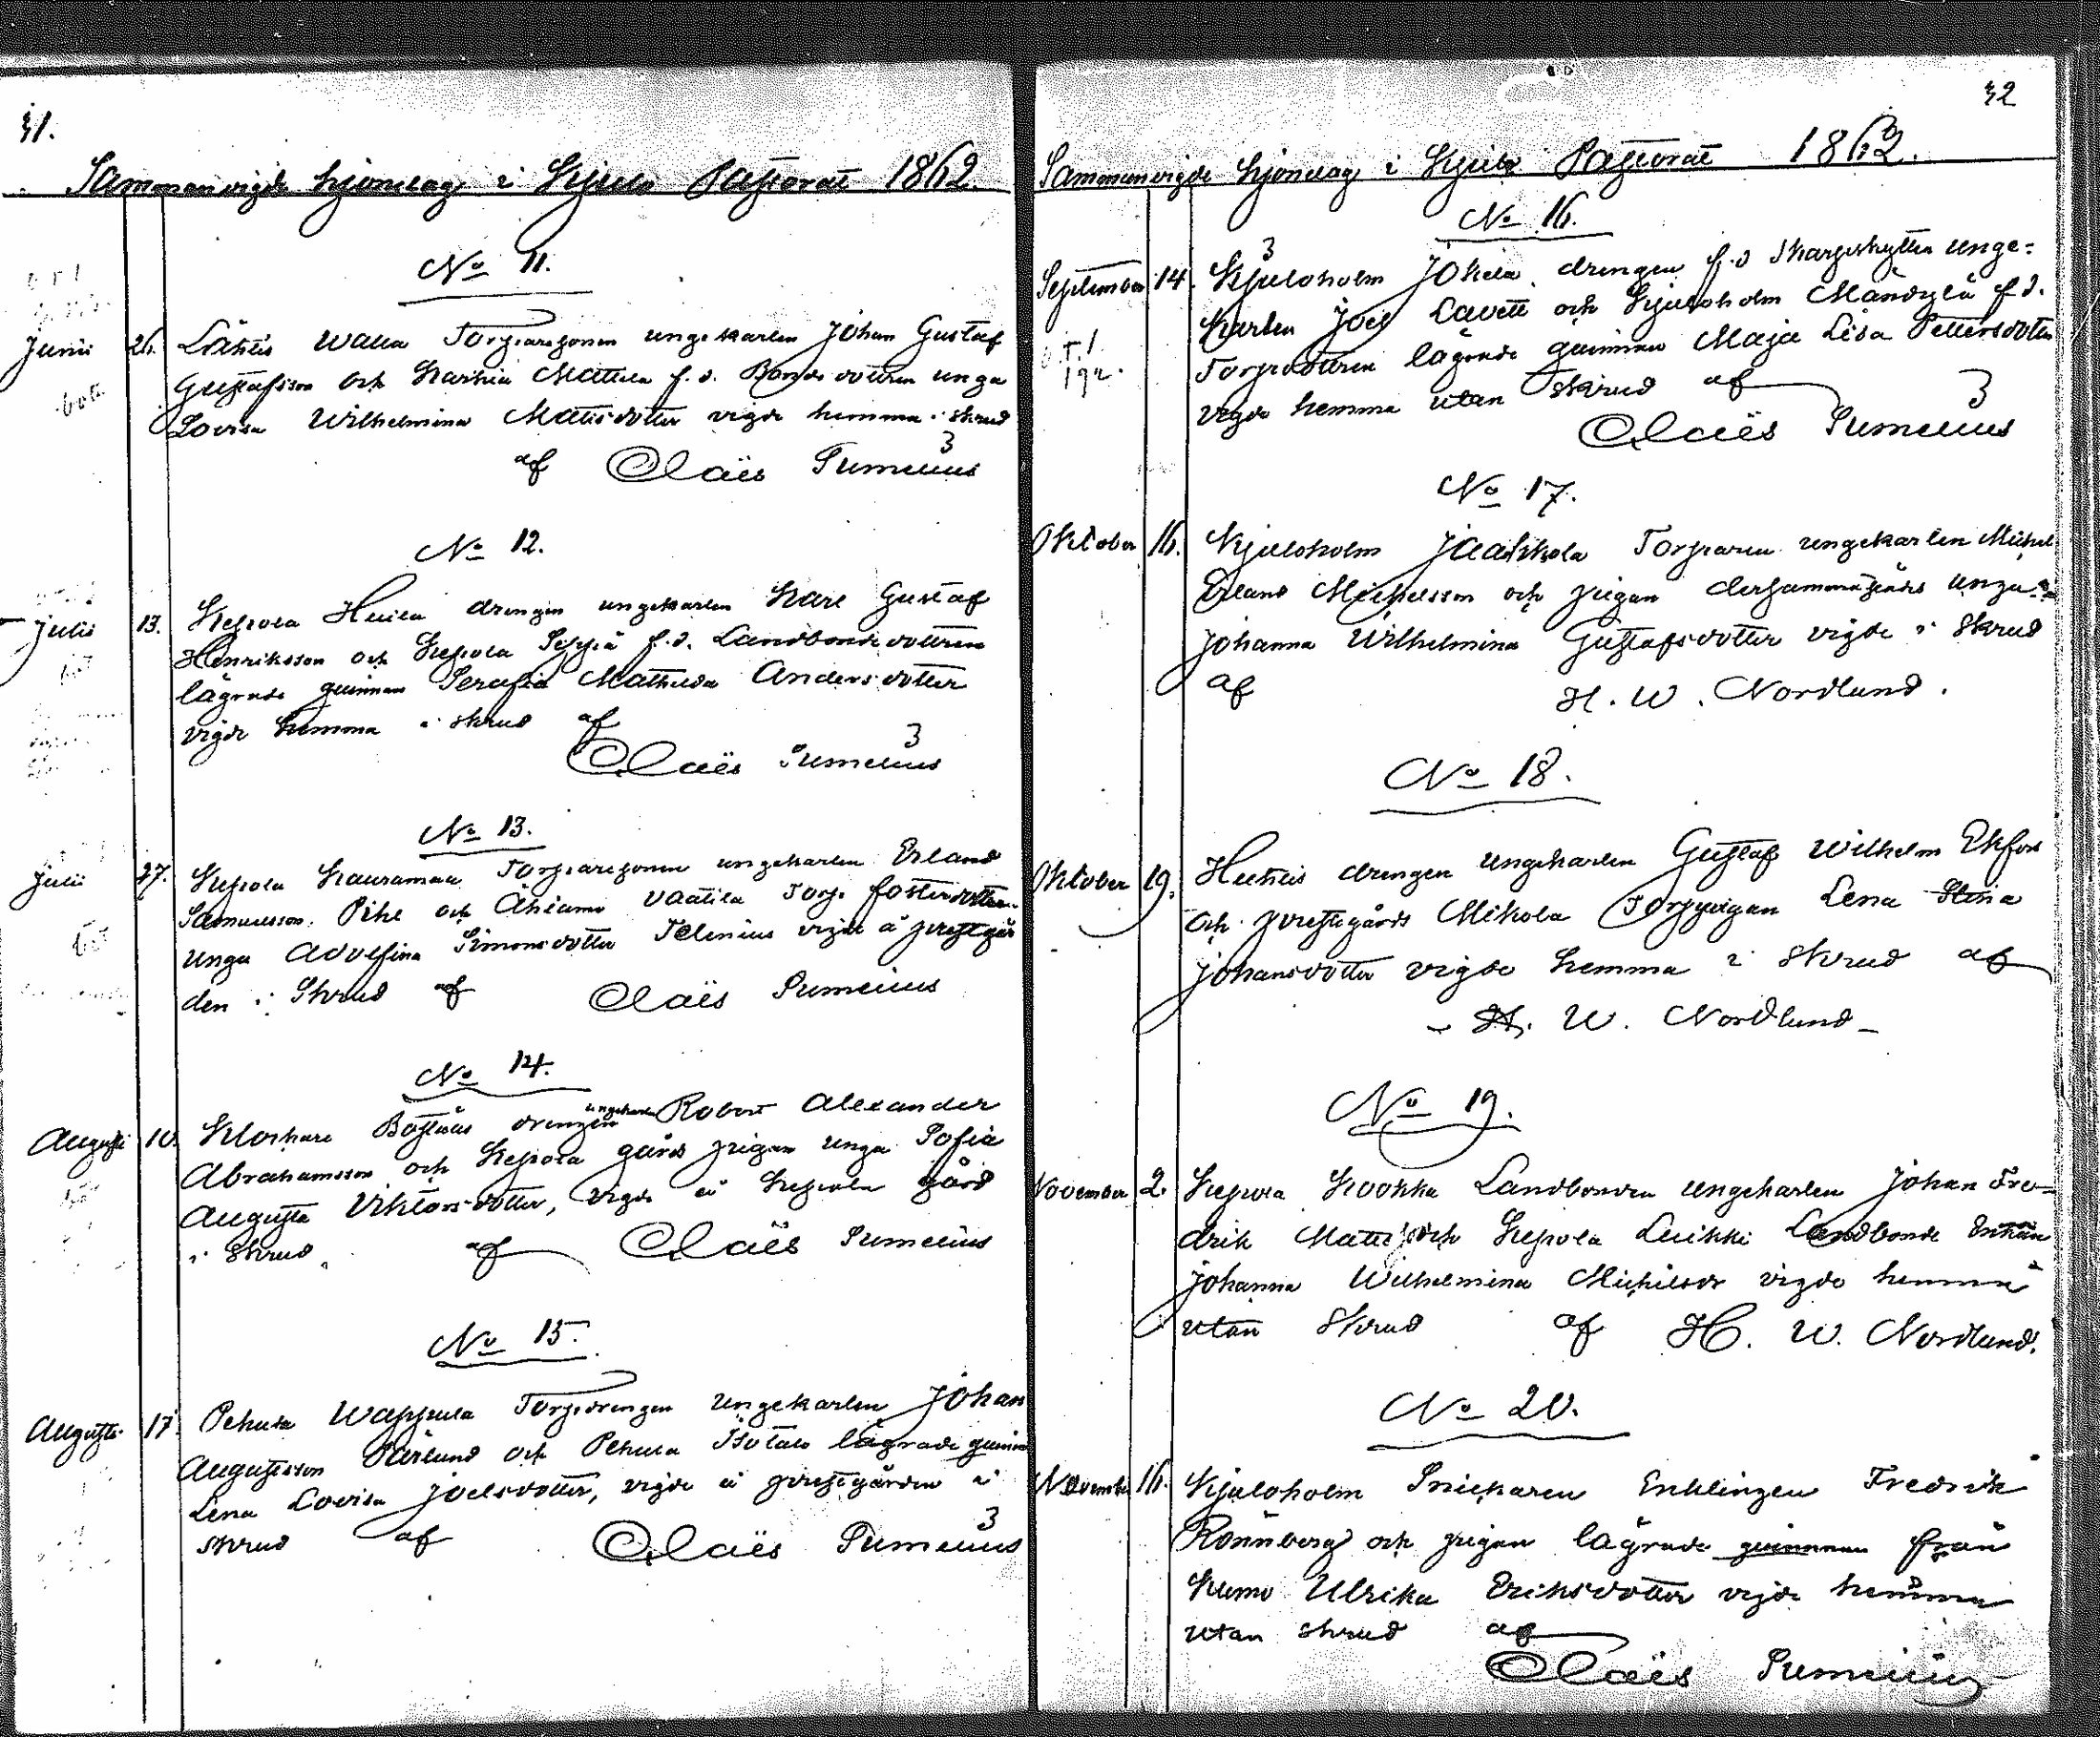 31.
Sammanvigde hjonelag i Kjulo Pastorat 1862.
No 11.
Junii 26. Lähtis Walla Torparesonen ungekarlen Johan Gustaf
Gustafsson och Karhia Mattila f.d. Bondedottren unga
Lovisa Wilhelmina Mattsdotter vigde hemma i skrud
af Claës Pumenius
No 12.
Julii 13. Kepola Heiila drengen ungekarlen Karl Gustaf
Henriksson och Kepola Seppä f.d. Landbondedottren
lägrade quinnan Serafia Mathilda Andersdotter
vigde hemma i skrud af
Claës Pumenius
No 13.
Julii 27. Kepola Kauramaa Torparesonen ungekarlen Erland
Samuelsson Pihl och Vaatila Torp. fosterdottren
unga Adolfina Simonsdotter Telenius vigde å prestgår
den i Skrud af Claës Pumenius
No 14.
Augusti 10. Klockare Boställs drengen ungekarlen Robert Alexander
Abrahamsson och Kepola gårds pigan unga Sofia
Augusta Viktorsdotter, vigde å Kepola gård
i Skrud af Claës Pumenius
No 15.
Augusti 17. Pehula Wappula Torpdrengen ungekarlen Johan
Augustsson Pärlund och Pehula Isotalo lägrade quinn
Lena Lovisa Joelsdotter, vigde å prestgården i
skrud af Claës Pumenius
32
Sammanvigde hjonelag i Kjulo Pastorat 1862.
No 16.
September 14. Kjuloholm Jokela drengen f.d. Skarpskytten unge-
karlen Joel Lavett och Kjuloholm Mändylä f.d.
Torpdottren lägrade quinnan Maja Lisa Pettersdotter
vigde hemma utan skrud af
Claës Pumenius
No 17.
Oktober 16. Kjuloholm Jaakkola Torparen ungekarlen Michel
Erland Michelsson och pigan dersammastädes unga
Johanna Wilhelmina Gustafsdotter vigde i skrud
af H. W. Nordlund.
No 18.
Oktober 19. Huhtis drengen ungekarlen Gustaf Wilhelm Ekfors
och prestegårds Mikola Torppigan Lena Stina
Johansdotter vigde hemma i skrud af
H. W. Nordlund
No 19.
November 2. Kepola Kookka Landbonden ungekarlen Johan Fre-
drik Matts och Kepola Luikki Landbonde Enkan
Johanna Wilhelmina Michelsdr vigde hemma
utan skrud af H. W. Nordlund.
No 20.
November 16. Kjuloholm Snickaren Enklingen Fredrik
Rönnberg och pigan lägrade quinnan från
Kumo Ulrika Eriksdotter vigde hemma
utan skrud af
Claës Pumenius